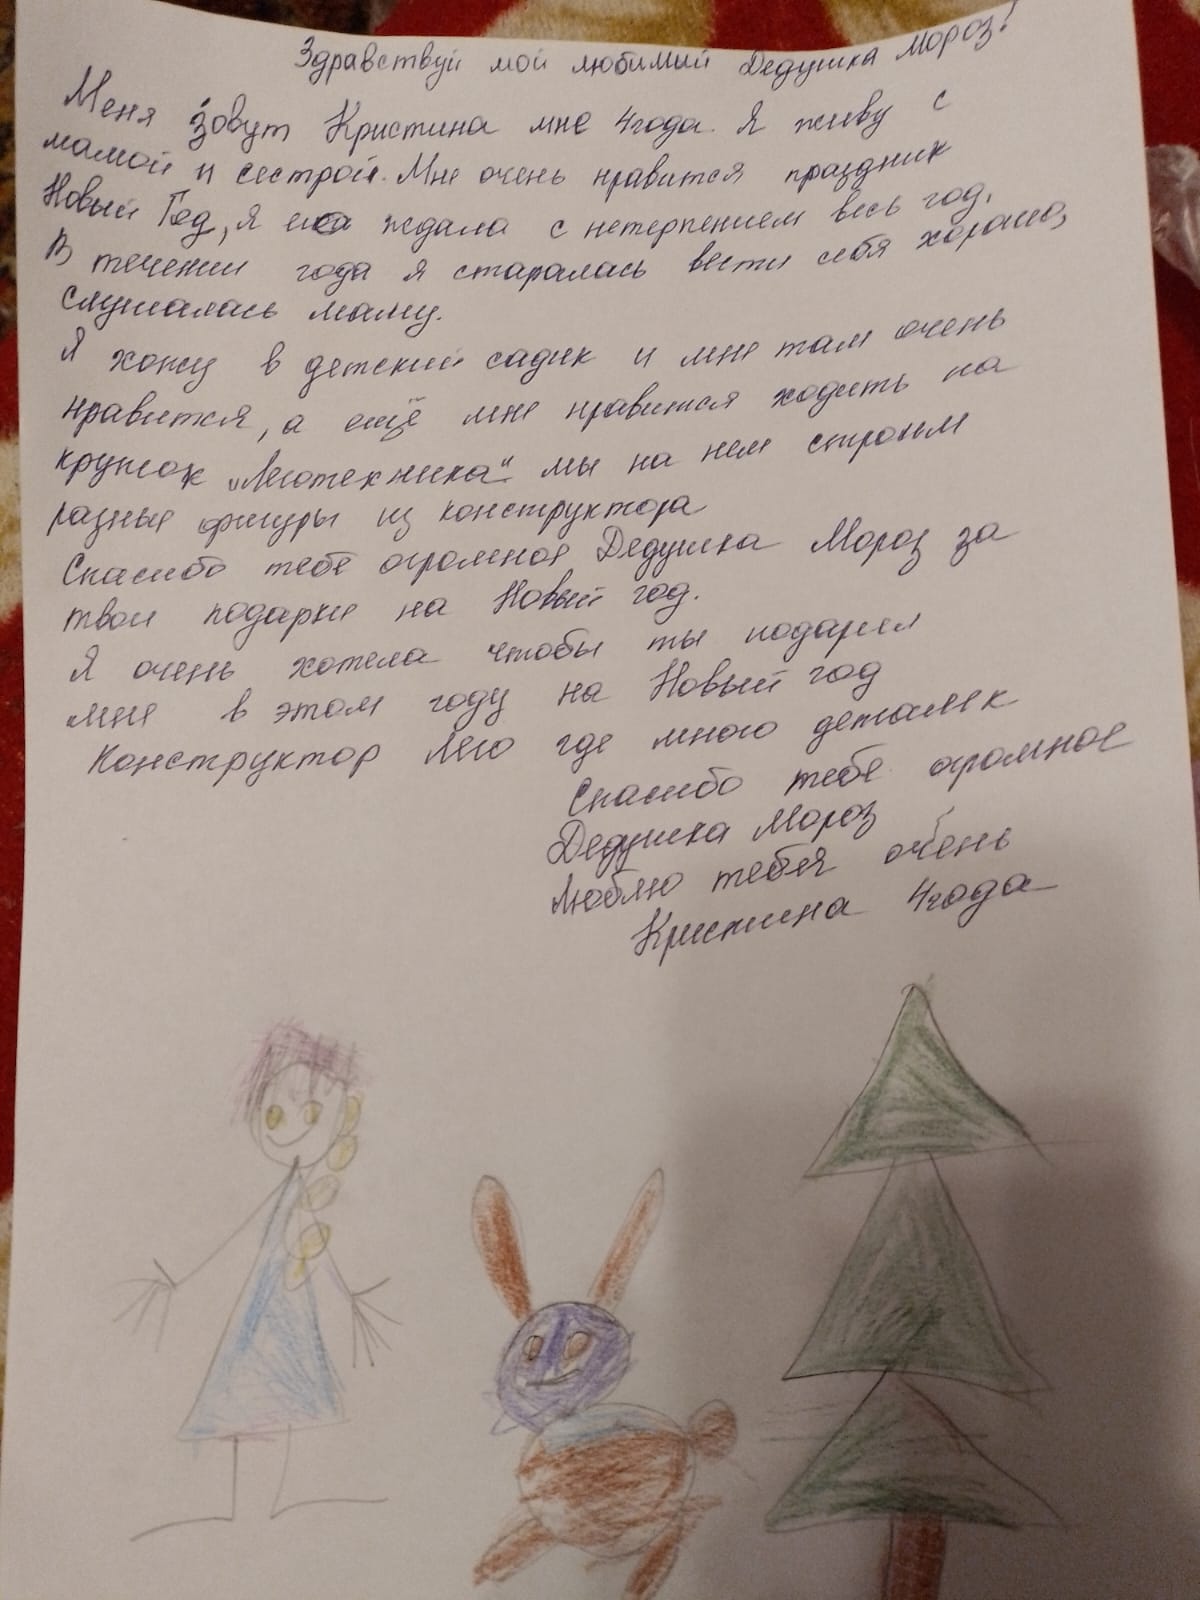 Здравствуй мой любимый Дедушка Мороз!
Меня зовут Кристина мне 4года. Я живу с
мамой и сестрой. Мне очень нравится праздник
Новый Год, я его ждала с нетерпением весь год.
В течении года я старалась вести себя хорошо,
слушалась маму.
Я хожу в детский садик и мне там очень
нравится, а ещё мне нравится ходить на
кружок „Леготехника" мы на нем строим
разные фигуры из конструктора
Спасибо тебе огромное Дедушка Мороз за
твои подарки на Новый год.
Я очень хотела чтобы ты подарил
мне в этом году на Новый год
Конструктор Лего где много деталек
Спасибо тебе огромное
Дедушка Мороз
Люблю тебя очень
Кристина 4года